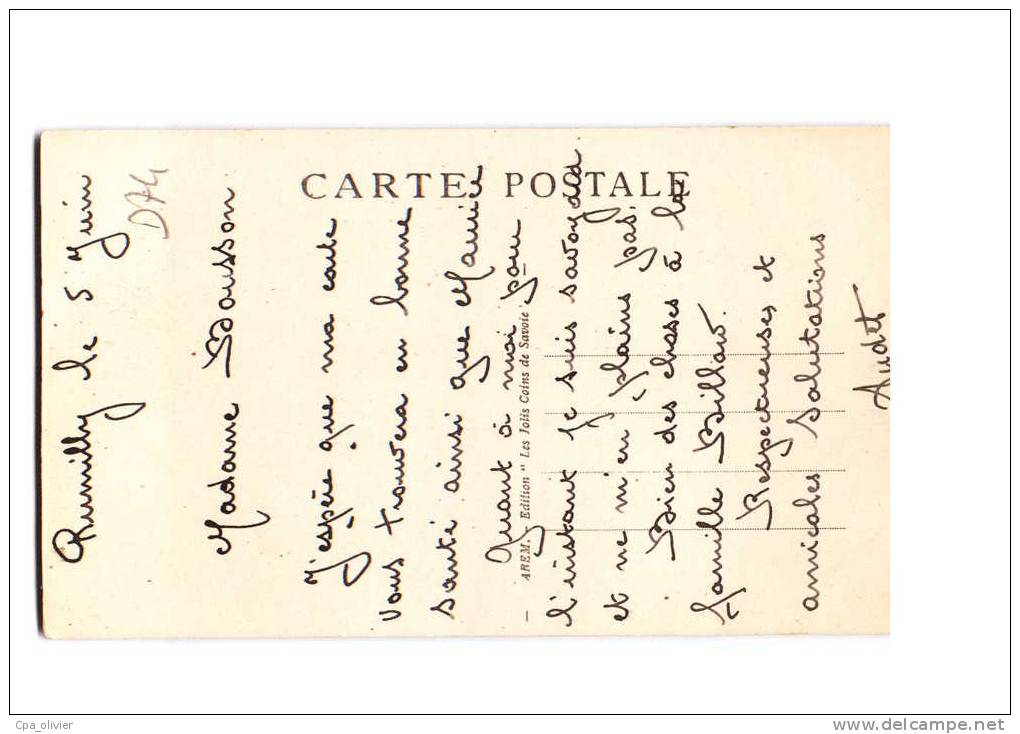 Rumilly le 5 Juin
D74
Madame Bousson
J'espère que ma carte
vous trouvera en bonne
santé ainsi que Maurice
Quant à moi pour
l'instant je suis savoyard
et ne m'en plains pas.
Bien des choses à la
famille Billaw.
Respectueuses et
amicales salutations
Audet
CARTE POSTALE
— AREM. - Edition "Les Jolis Coins de Savoie" —
Cpa_olivier
www.delcampe.net